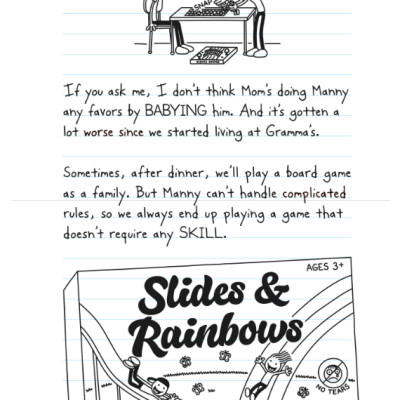 SNAP
If you ask me, I don't think Mom's doing Manny
any favors by BABYING him. And it's gotten a
lot worse since we started living at Gramma's.
Sometimes, after dinner, we'll play a board game
as a family. But Manny can't handle complicated
rules, so we always end up playing a game that
doesn't require any SKILL.
AGES 3+
Slides &
Rainbows
NO TEARS